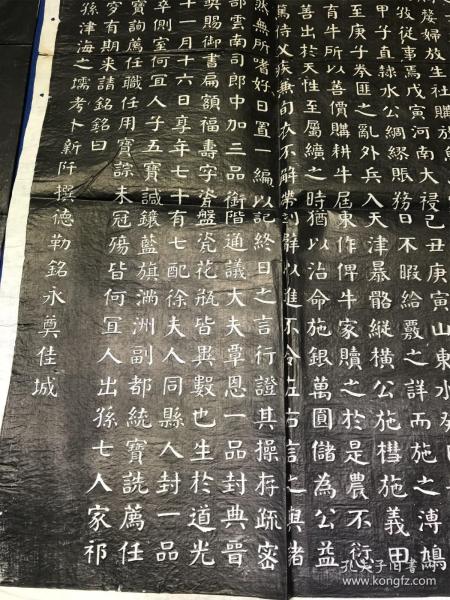 嫠婦放生社購放魚
孜從事焉戊寅河南大祲己丑庚寅山東水
甲子直隸水公綢繆賬務日不暇給覈之詳而施之溥鳩
至庚子拳匪之亂外兵入天津暴骼縱橫公施槥施義甲
有牛所以善價購耕牛屆東作俾牛家贖之於是農不
善出於天性至屬纊之時猶以治命施銀萬圓儲為公益
篤侍父疾無旬衣不解帶
然無所嗜好日置一編以記終日之言行證其操存疏密
部雲南司郎中加三品銜階通議大夫覃恩一品封典晉
奬賜御書扁額福壽字瓷盤瓷花瓶皆異數也生於道光
十一月十六日享年七十有七配徐夫人同縣人封一品
卒側室何宜人子五寶諴鑲藍旗滿洲副都統寶詵薦任
寶詢薦任職任用寶諒未冠殤皆何宜人出孫七人家祁
窆有期來請銘銘曰
孫津海之壖考卜新阡撰德勒銘永奠佳城
孔夫子旧书网
www.kongfz.com